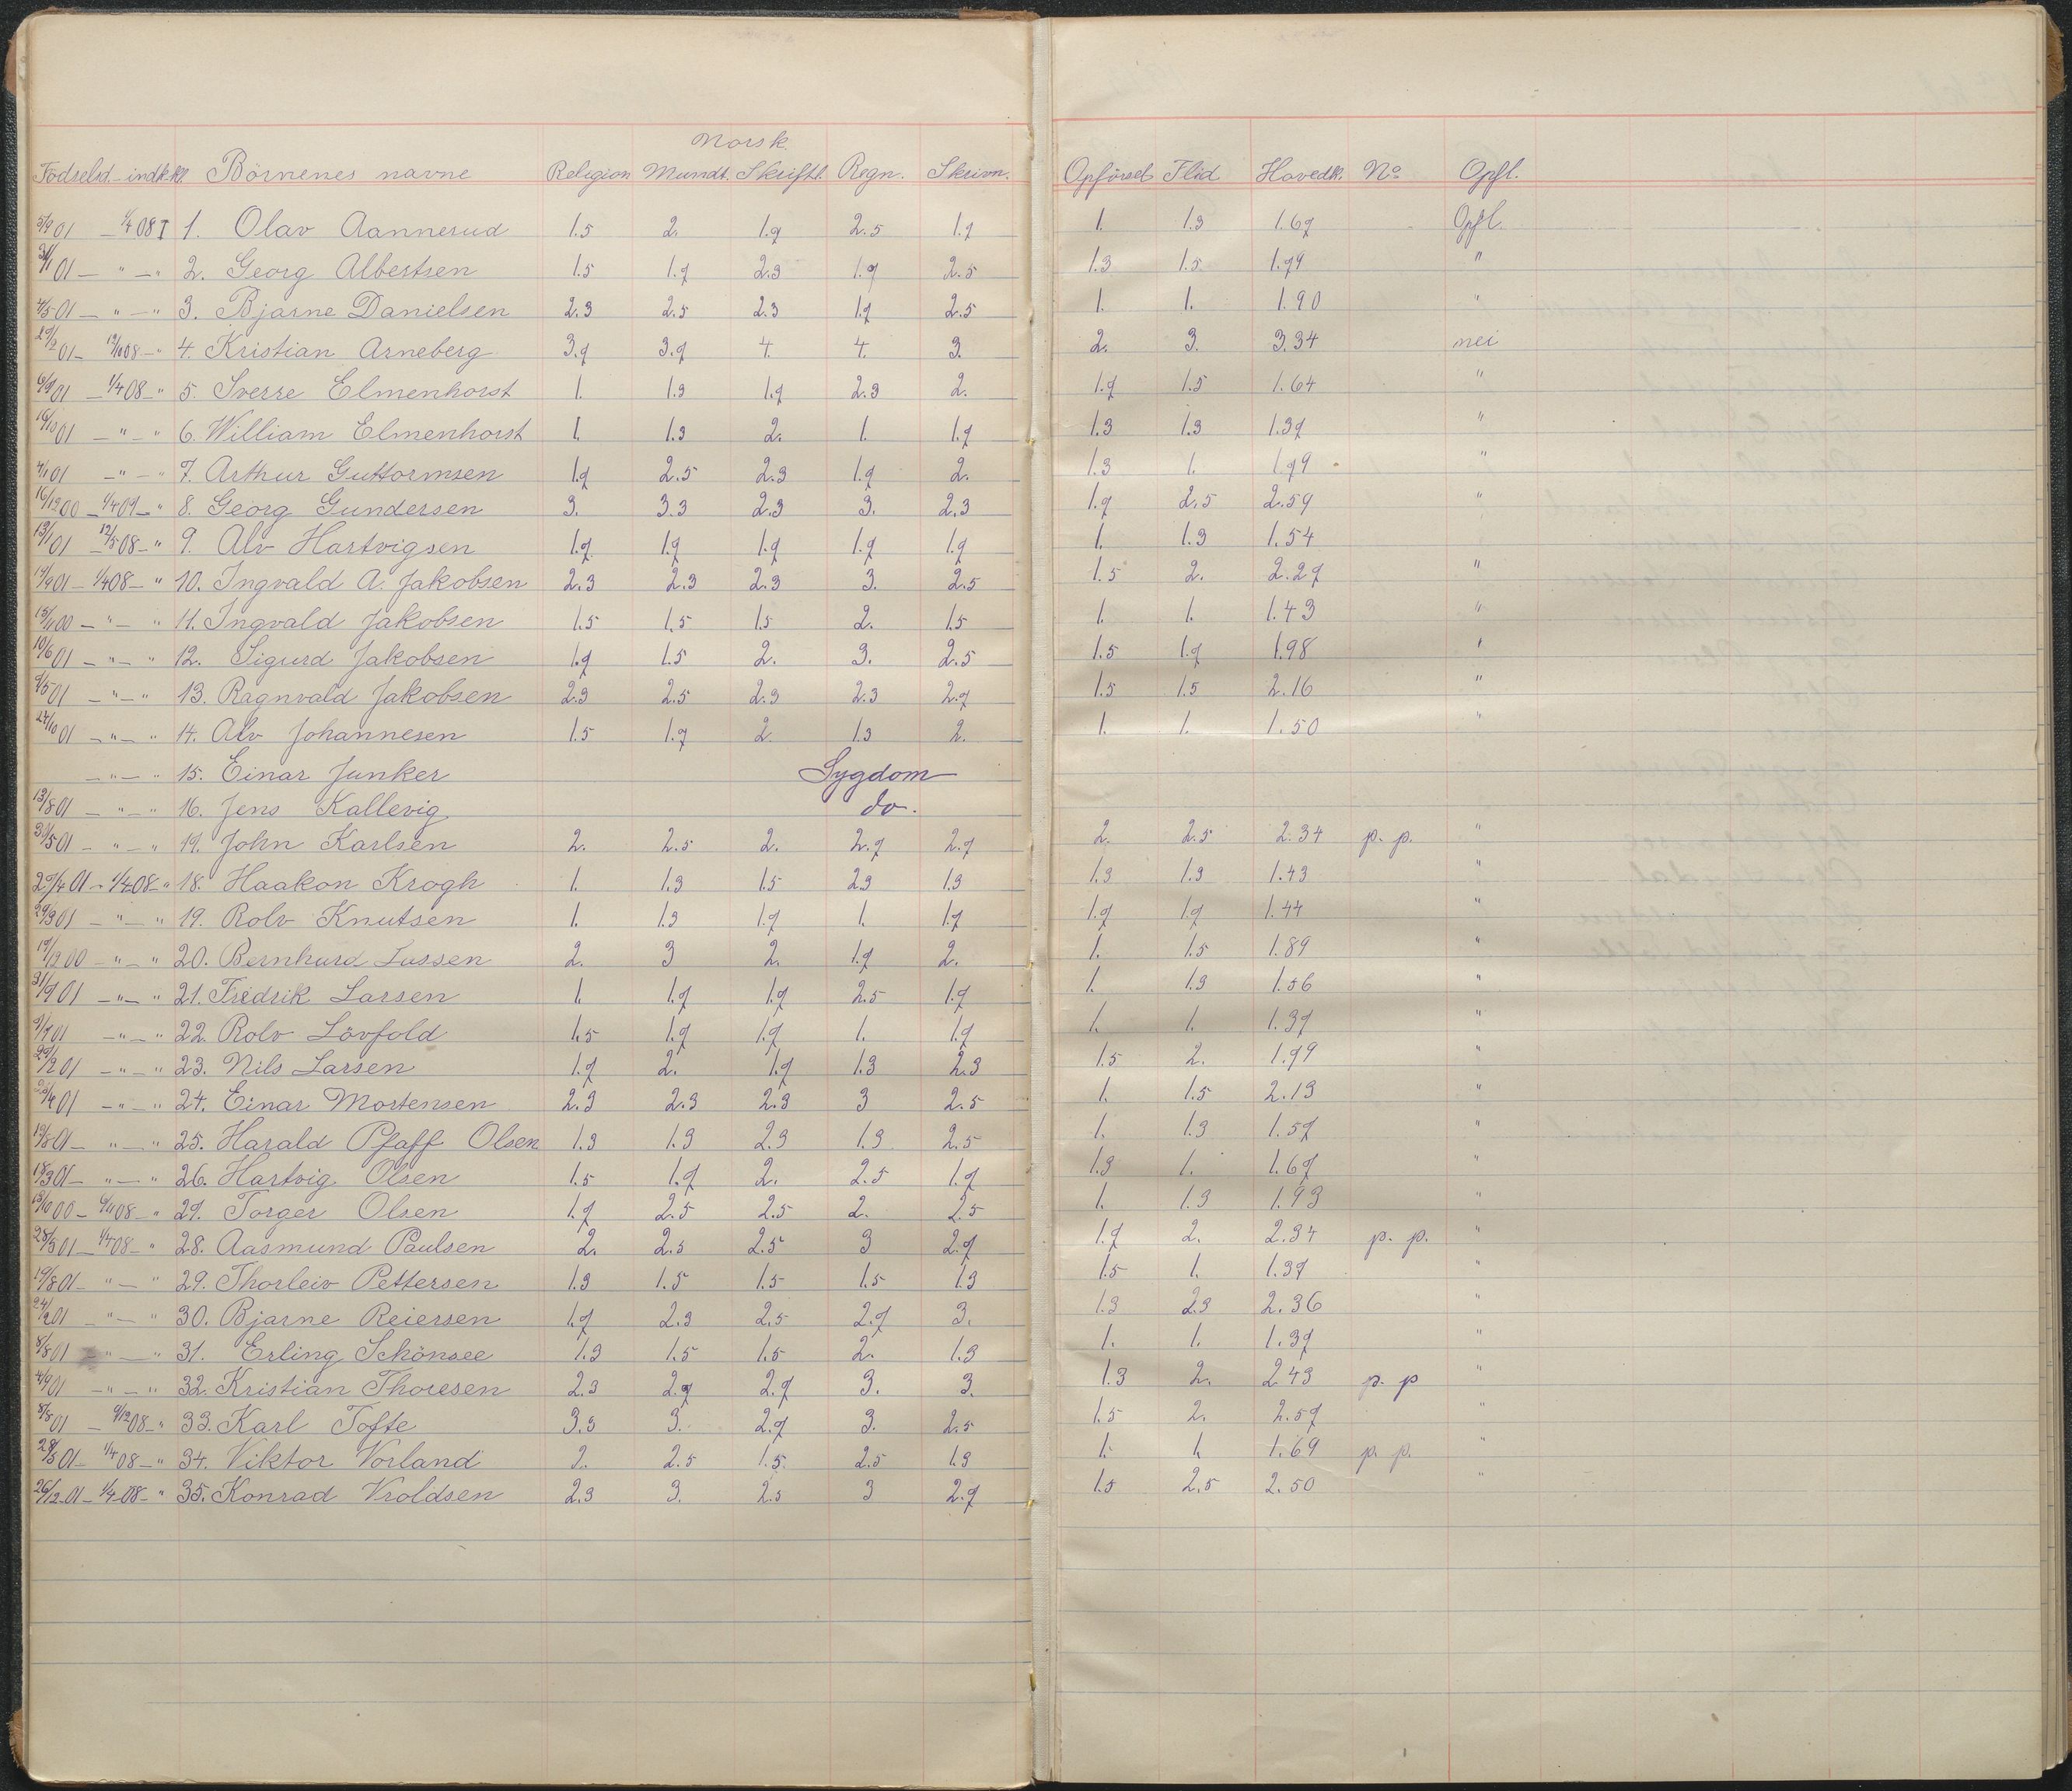 Norsk.
Födselsd. - indk.kl. Börnenes navne Religion Mundt. Skriftl. Regn. Skrivn. Opförsel Flid Hovedk. No Opfl.
5/9 01 - 1/4 08 I 1. Olav Aannerud 1.5 2. 1.7 2.5 1.7 1. 1.3 1.67 Opfl.
31/1 01 - " - " 2. Georg Albertsen 1.5 1.7 2.3 1.7 2.5 1.3 1.5 1.79 "
4/5 01 - " - " 3. Bjarne Danielsen 2.3 2.5 2.3 1.7 2.5 1. 1. 1.90 "
01 - 08 - " 4. Kristian Arneberg 3.7 3.7 4. 4. 3. 2. 3. 3.34 nei
6/9 01 - 1/4 08 - " 5. Sverre Elmenhorst 1. 1.3 1.7 2.3 2. 1.7 1.5 1.64 "
19/10 01 - " - " 6. William Elmenhorst 1. 1.3 2. 1. 1.7 1.3 1.3 1.37 "
4/1 01 - " - " 7. Arthur Guttormsen 1.7 2.5 2.3 1.7 2. 1.3 1. 1.79 "
16/12 00 - 1/4 09 - " 8. Georg Gundersen 3. 3.3 2.3 3. 2.3 1.7 2.5 2.59 "
13/1 01 - 12/5 08 - " 9. Alv Hartvigsen 1.7 1.7 1.7 1.7 1.7 1. 1.3 1.54 "
19/9 01 - 1/4 08 - " 10. Ingvald A. Jakobsen 2.3 2.3 2.3 3. 2.5 1.5 2. 2.27 "
15/11 00 - " - " 11. Ingvald Jakobsen 1.5 1.5 1.5 2. 1.5 1. 1. 1.43 "
10/6 01 - " - " 12. Sigurd Jakobsen 1.7 1.5 2. 3. 2.5 1.5 1.7 1.98 "
9/5 01 - " - " 13. Ragnvald Jakobsen 2.3 2.5 2.3 2.3 2.7 1.5 1.5 2.16 "
24/10 01 - " - " 14. Alv Johannesen 1.5 1.7 2. 1.3 2. 1. 1. 1.50 "
- " - " 15. Einar Junker Sygdom
13/8 01 - " - " 16. Jens Kallevig do.
30/5 01 - " - " 17. John Karlsen 2. 2.5 2. 2.7 2.7 2. 2.5 2.34 p. p. "
27/4 01 - 1/4 08 - " 18. Haakon Krogh 1. 1.3 1.5 2.3 1.3 1.3 1.3 1.43 "
29/3 01 - " - " 19. Rolv Knutsen 1. 1.3 1.7 1. 1.7 1.7 1.7 1.44 "
19/12 00 - " - " 20. Bernhard Lassen 2. 3 2. 1.7 2. 1. 1.5 1.89 "
01 - " - " 21. Fredrik Larsen 1. 1.7 1.7 2.5 1.7 1. 1.3 1.56 "
01 - " - " 22. Rolv Lövfold 1.5 1.7 1.7 1. 1.7 1. 1. 1.37 "
01 - " - " 23. Nils Larsen 1.7 2. 1.7 1.3 2.3 1.5 2. 1.79 "
01 - " - " 24. Einar Mortensen 2.3 2.3 2.3 3 2.5 1. 1.5 2.13 "
19/8 01 - " - " 25. Harald Pfaff Olsen 1.3 1.3 2.3 1.3 2.5 1. 1.3 1.57 "
18/3 01 - " - " 26. Hartvig Olsen 1.5 1.7 2. 2.5 1.7 1.3 1. 1.67 "
13/10 00 - 08 - " 27. Torger Olsen 1.7 2.5 2.5 2. 2.5 1. 1.3 1.93 "
28/5 01 - 1/4 08 - " 28. Aasmund Paulsen 2. 2.5 2.5 3 2.7 1.7 2. 2.34 p. p. "
19/8 01 - " - " 29. Thorleiv Pettersen 1.3 1.5 1.5 1.5 1.3 1.5 1. 1.37 "
01 - " - " 30. Bjarne Reiersen 1.7 2.3 2.5 2.7 3. 1.3 2.3 2.36 "
8/8 01 - " - " 31. Erling Schönsee 1.3 1.5 1.5 2. 1.3 1. 1. 1.37 "
4/9 01 - " - " 32. Kristian Thoresen 2.3 2.7 2.7 3. 3. 1.3 2. 2.43 p. p "
8/8 01 - 9/12 08 - " 33. Karl Tofte 3.3 3. 2.7 3. 2.5 1.5 2. 2.57 "
28/5 01 - 1/4 08 - " 34. Viktor Vorland 2. 2.5 1.5 2.5 1.3 1. 1. 1.69 p. p. "
26/12 01 - 1/4 08 - " 35. Konrad Vroldsen 2.3 3. 2.5 3 2.7 1.5 2.5 2.50 "